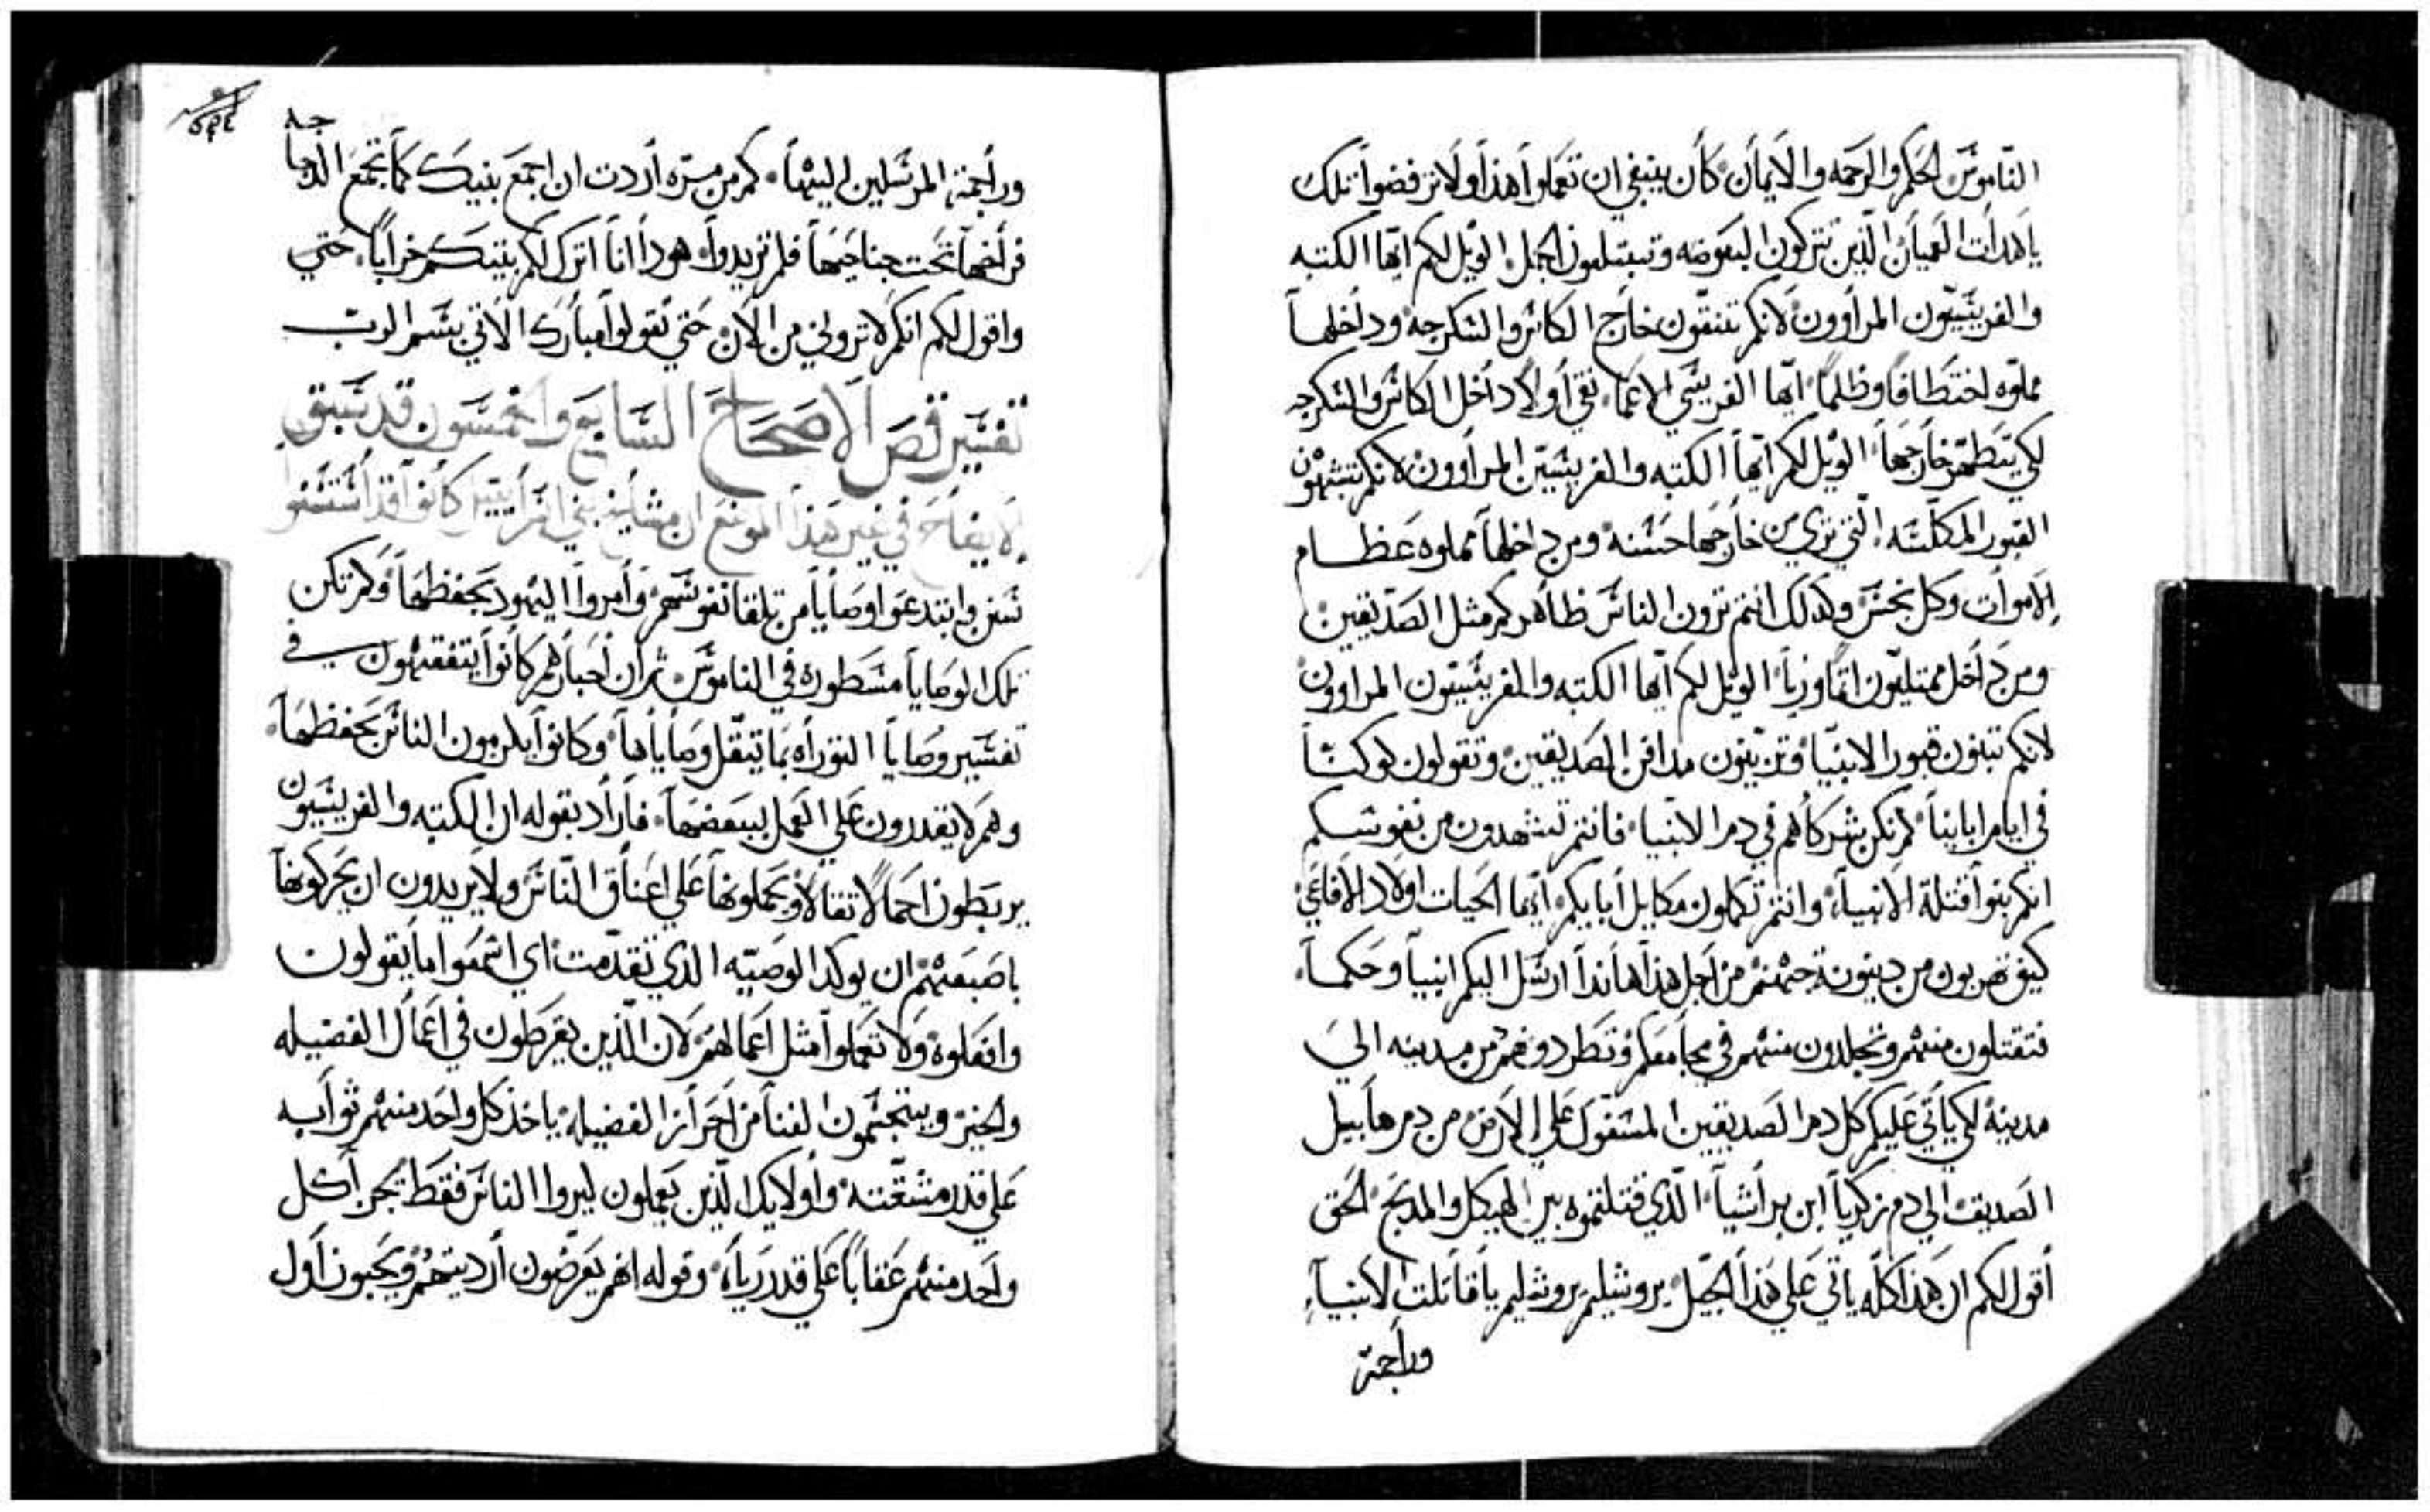 الناموس الحكم والرحمه والايمان كان ينبغي ان تعملوا هذا ولا ترفضوا تلك
يا هدات العميان الذين تتركون البعوضه وتبتلعون الجمل الويل لكم ايها الكتبه
والفريسيون المراوون لانكم تنقون خارج الكاس والسكرجه وداخلها
مملوه اختطافا وظلما ايها الفريسي الاعما نقي اولا داخل الكاس والسكرجه
لكي يتطهر خارجها الويل لكم ايها الكتبه والفريسين المراوون لانكم تشبهون
القبور المكلسه التي تري من خارجها حسنه ومن داخلها مملوه عظام
الاموات وكل نجس وكذلك انتم ترون الناس ظاهركم مثل الصديقين
ومن داخل ممتليون اثما وريا الويل لكم ايها الكتبه والفريسيون المراوون
لانكم تبنون قبور الانبيا وتزينون مدافن الصديقين وتقولون لو كنا
في ايام ابائنا لم نكن شركاهم في دم الانبيا فانتم تشهدون من نفوسكم
انكم بنوا قتلة الانبياء وانتم تكملون مكايل أبايكم ايها الحيات اولاد الافاعي
كيف تهربون من دينونة جهنم من اجل هذا هانذا ارسل اليكم انبيا وحكما
فتقتلون منهم وتجلدون منهم في مجامعكم وتطردونهم من مدينه الي
مدينه لكي ياتي عليكم كل دم الصديقين المسفوك علي الارض من دم هابيل
الصديق الي دم زكريا ابن براشيا الذي قتلتموه بين الهيكل والمدبح الحق
أقول لكم ان هذا كله ياتي علي هذا الجيل يروشليم يروشليم يا قاتلت الانبياء
وراجمة
وراجمة المرسلين اليها كم من مره أردت ان اجمع بنيك كما تجمع الدجاجه
فراخها تحت جناحيها فلم تريدوا هودا انا اترك لكم بيتكم خرابا حتي
واقول لكم انكم لا تروني من الان حتي تقولوا مبارك الاتي بسم الرب
تفسير فص الاصحاح السابع والخمسون قد سبق
الايضاح في غير هذا الموضع ان مشايخ بني اسراييل كانوا قد استسنوا
سنن وابتدعوا وصايا من تلقا نفوسهم وأمروا اليهود بحفظها ولم تكن
تلك الوصايا مسطوره في الناموس ثم ان أحبارهم كانوا يتفقهون في
تفسير وصايا التوراه بما يثقل وصاياها وكانوا يلزمون الناس بحفظها
وهم لا يقدرون علي العمل ببعضها فأراد بقوله ان الكتبه والفريسيون
يربطون احمالا ثقالا ويحملونها علي اعناق الناس ولا يريدون ان يحركونها
باصبعهم ان يوكد الوصيه الذي تقدمت اي اسمعوا ما يقولون
وافعلوه ولا تعملوا مثل اعمالهم لان الذين يفرطون في اعمال الفضيله
والخير ويتجشمون العنا من احراز الفضيله ياخذ كل واحد منهم ثوابه
علي قدر مشقته وأولايك الذين يعملون ليروا الناس فقط يجزا كل
واحد منهم عقابا علي قدر رياه وقوله انهم يعرضون أرديتهم ويحبون اول